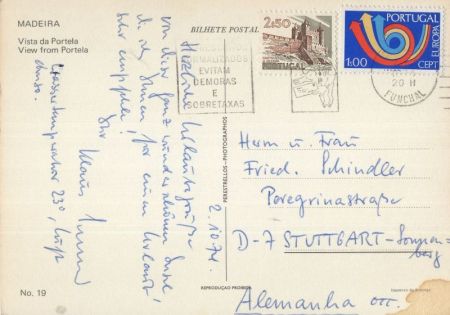 MADEIRA
Vista da Portela
View from Portela
BILHETE POSTAL
2$50
PORTUGAL
PORTUGAL
EUROPA
1$00 CEPT
NORMALIZADOS
EVITAM
DEMORAS
E
SOBRETAXAS
20-H
FUNCHAL
2.10.74.
Herzliche Urlaubsgrüße
von dieser ganz wunderschönen Insel,
die ich Ihnen für einen Urlaub
sehr empfehle!
Ihr Klaus
Wassertemperatur 23°, Luft
PERESTRELLOS-PHOTOGRAPHOS
Herrn u. Frau
Fried. Schindler
Peregrinastraße
D-7 STUTTGART-Sonnen-
berg
Alemanha occ.
No. 19
REPRODUÇÃO PROIBIDA